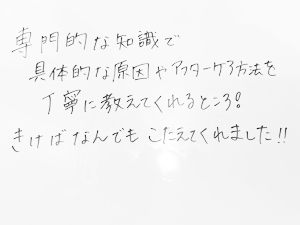 専門的な知識で
具体的な原因やアフターケア方法を
丁寧に教えてくれるところ!
きけばなんでも こたえてくれました!!